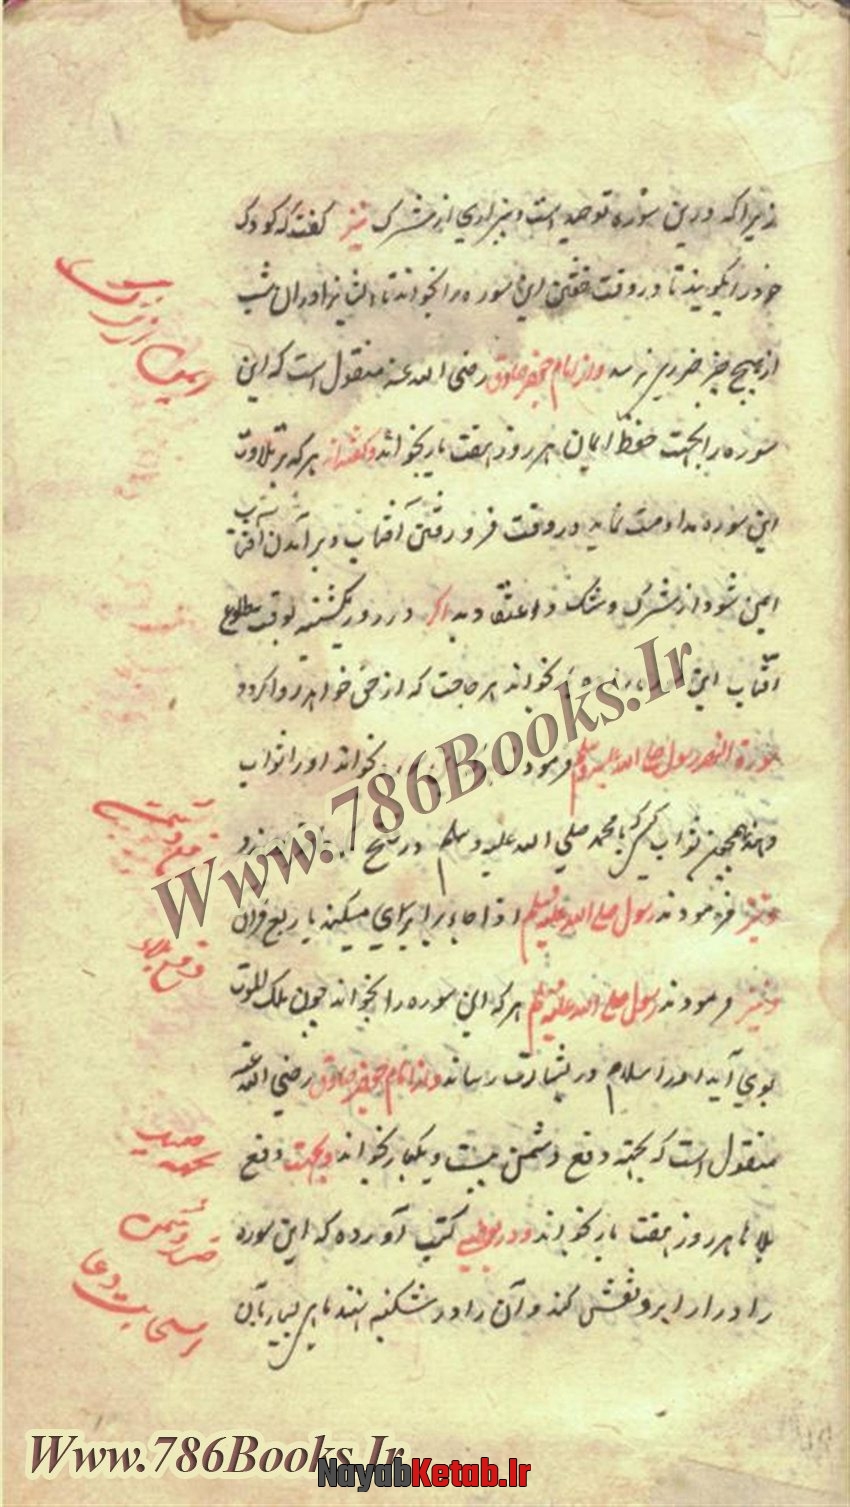 زیراکه درین سوره توحید است و بیزاری از شرک نیز گفته که کودک
خود را بگویند تا در وقت خفتن این سوره را بخواند تا او را آن شب
از هیچ چیز ضرری نرسد و از امام جعفر صادق رضی الله عنه منقول است که این
سوره را بجهت حفظ ایمان هر روز هفت بار بخواند و گفته‌اند هر که بر تلاوت
این سوره مداومت نماید در وقت فرو رفتن آفتاب و بر آمدن آفتاب
ایمن شود از شرک و شک و اعتقاد بد اگر در روز یکشنبه بوقت طلوع
آفتاب این بخواند هر حاجت که از حق خواهد روا گردد
سورة النصر رسول صلی الله علیه وسلم فرمودند بخواند او را ثواب
دهند همچون ثواب کسی که با محمد صلی الله علیه وسلم در فتح
و نیز فرمودند رسول صلی الله علیه وسلم اذا جاء برابری میکند با ربع قرآن
و نیز فرمودند رسول صلی الله علیه وسلم هر که این سوره را بخواند چون ملک الموت
بوی آید او را سلام و بشارت رساند و از امام جعفر صادق رضی الله عنه
منقول است که بجهة دفع دشمن بیست و یکبار بخواند و بجهت دفع
بلاها هر روز هفت بار بخواند و در بعضی کتب آورده که این سوره
را در نقش کند و آن را در شبکه بندند ماهی بسیار در آن
ایمن از شرک
دفع دشمن
دفع بلا
بجهة صید
استجابت دعا
Www.786Books.Ir
Www.786Books.Ir
NayabKetab.Ir